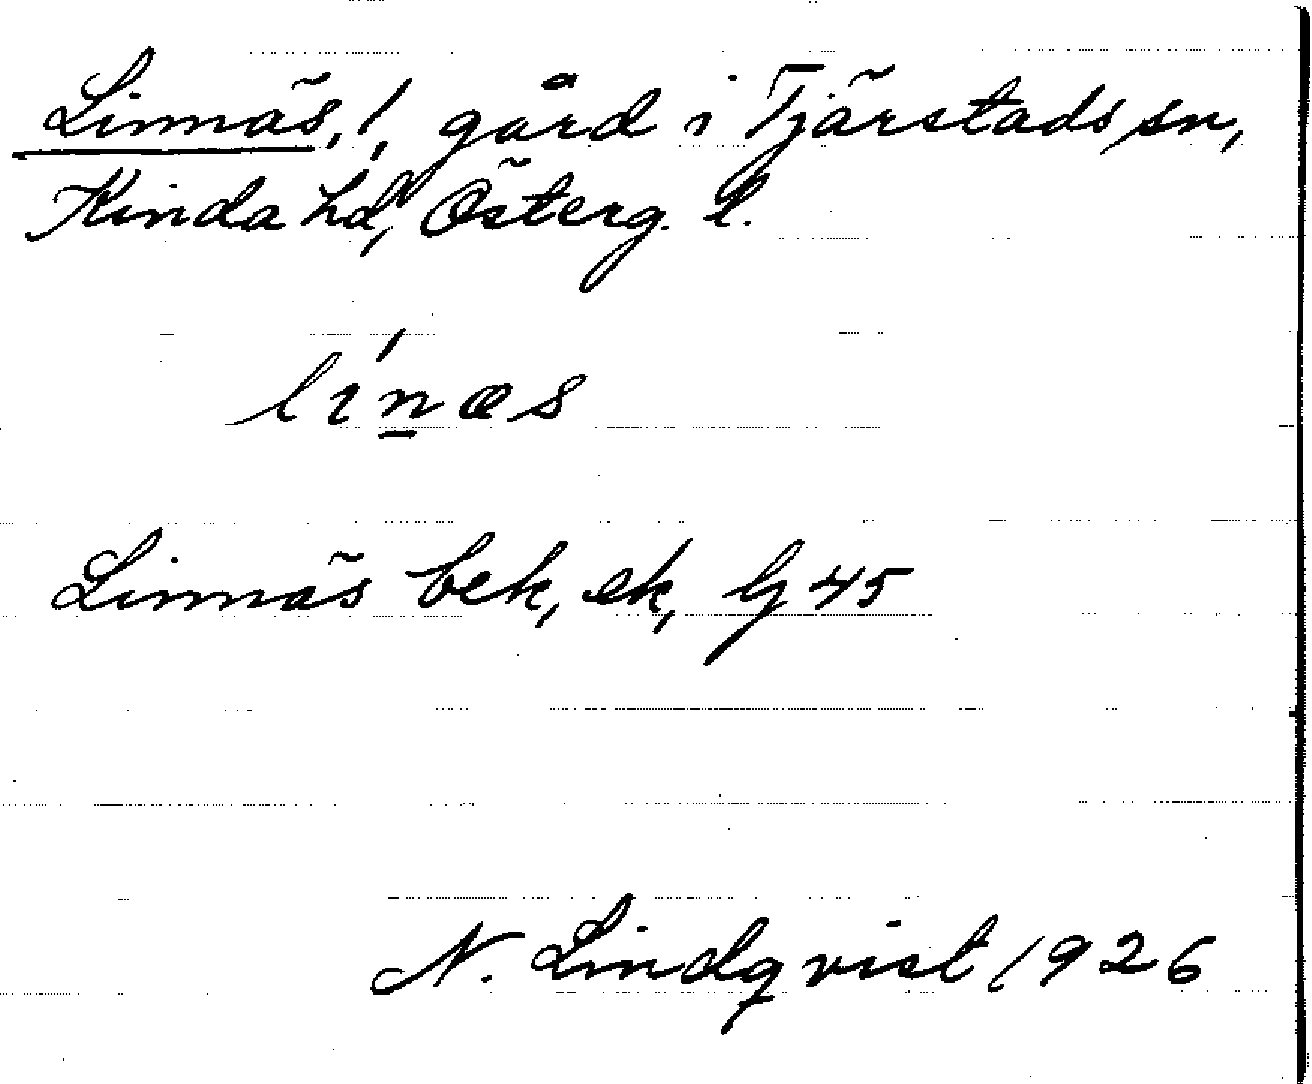 Linnäs, !, gård i Tjärstads sn,
Kinda hd, Österg. l.
li´n̲æs
Linnäs bek, ek, Gj 45
N. Lindqvist 1926